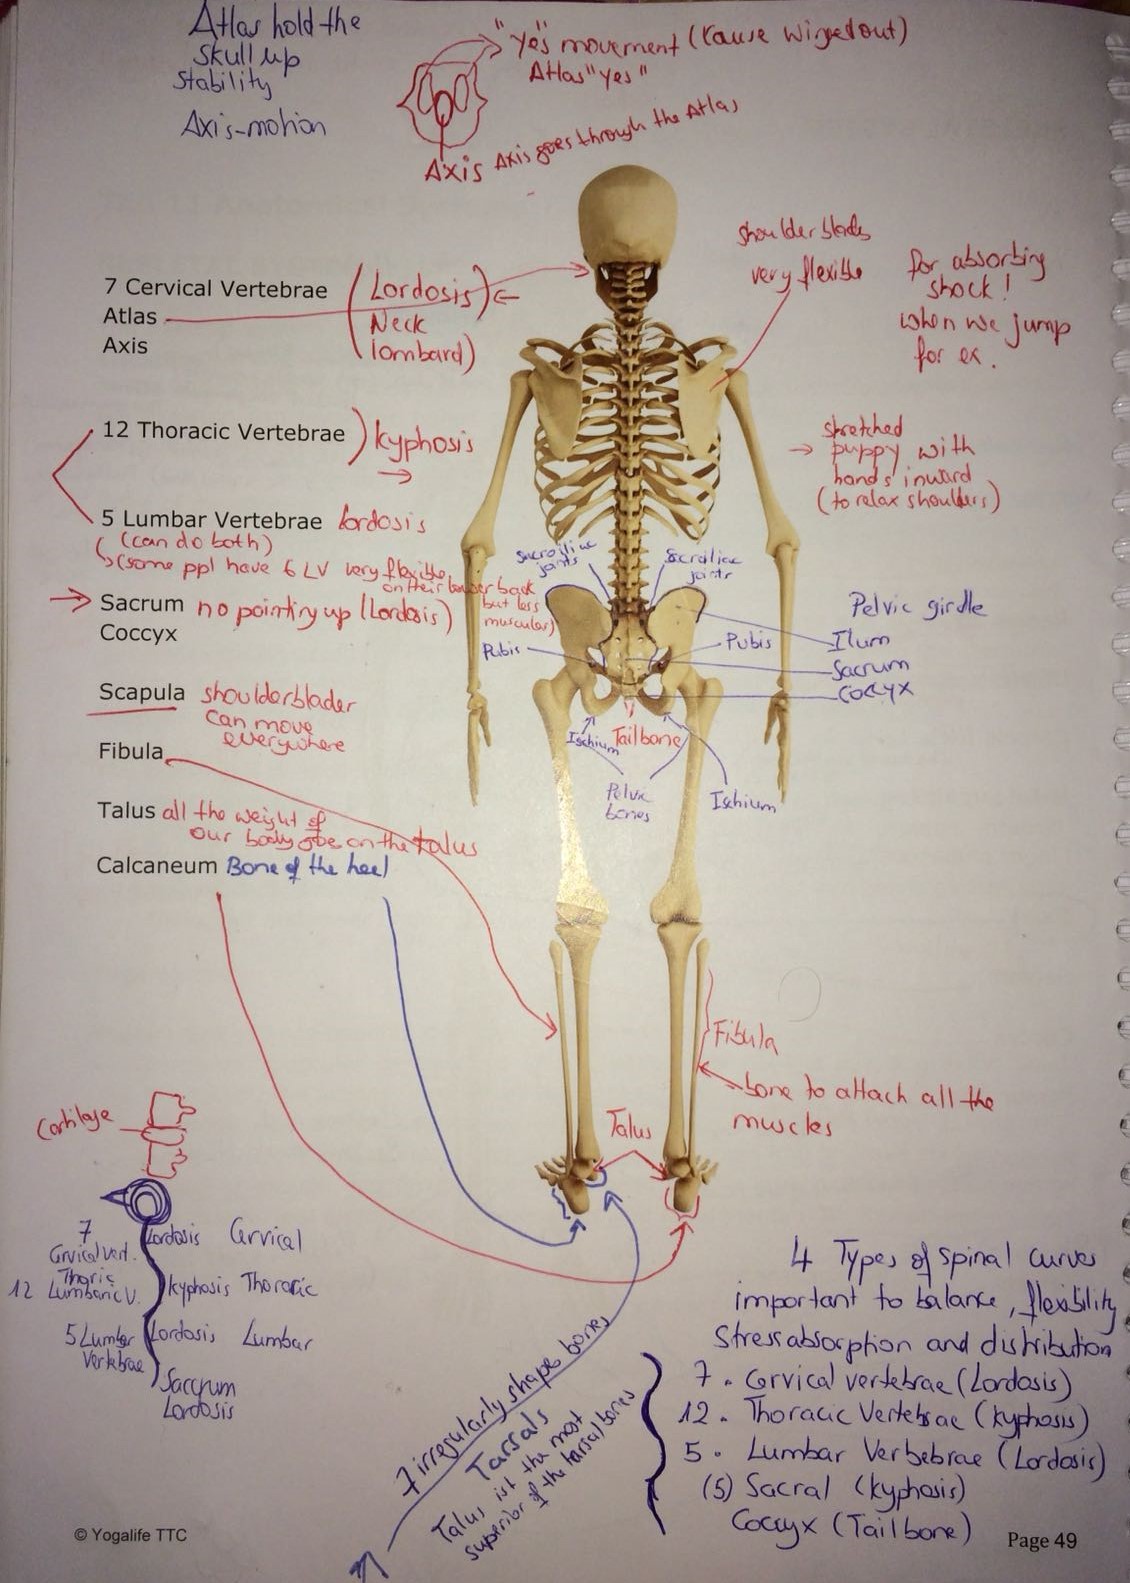 Atlas hold the
skull up
stability
Axis-motion
"yes" movement (cause winged out)
Atlas "yes"
Axis Axis goes through the Atlas
7 Cervical Vertebrae (Lordosis)
Atlas Neck
Axis lombard)
shoulder blades
very flexible
for absorbing
shock!
when we jump
for ex.
12 Thoracic Vertebrae ) kyphosis
stretched
puppy with
hands inward
(to relax shoulders)
5 Lumbar Vertebrae lordosis
(can do both)
(some ppl have 6 LV very flexible
on their lower back
but less
muscular)
Sacrum no pointiry up (Lordosis)
Coccyx
Sacroiliac
joints
Sacroiliac
joints
Pelvic girdle
Pubis
Pubis
Ilum
Sacrum
Coccyx
Ischium
Tailbone
Pelvic
bones
Ischium
Scapula shoulderblader
can move
everywhere
Fibula
Talus all the weight of
our body goes on the talus
Calcaneum Bone of the heel
Fibula
bone to attach all the
muscles
Talus
Cartilage
7
Cervical vert.
Lordosis Cervical
12
Lumbaric V.
kyphosis Thoracic
5 Lumbar
Vertebrae
Lordosis Lumbar
Sacrum
Lordosis
7 irregularly shape bones
Tarsals
Talus ist the most
superior of the tarsal bones
4 Types of spinal curves
important to balance, flexibility
Stress absorption and distribution
7. Cervical vertebrae (Lordosis)
12. Thoracic Vertebrae (kyphosis)
5. Lumbar Verbebrae (Lordosis)
(5) Sacral (kyphosis)
Coccyx (Tailbone)
© Yogalife TTC
Page 49